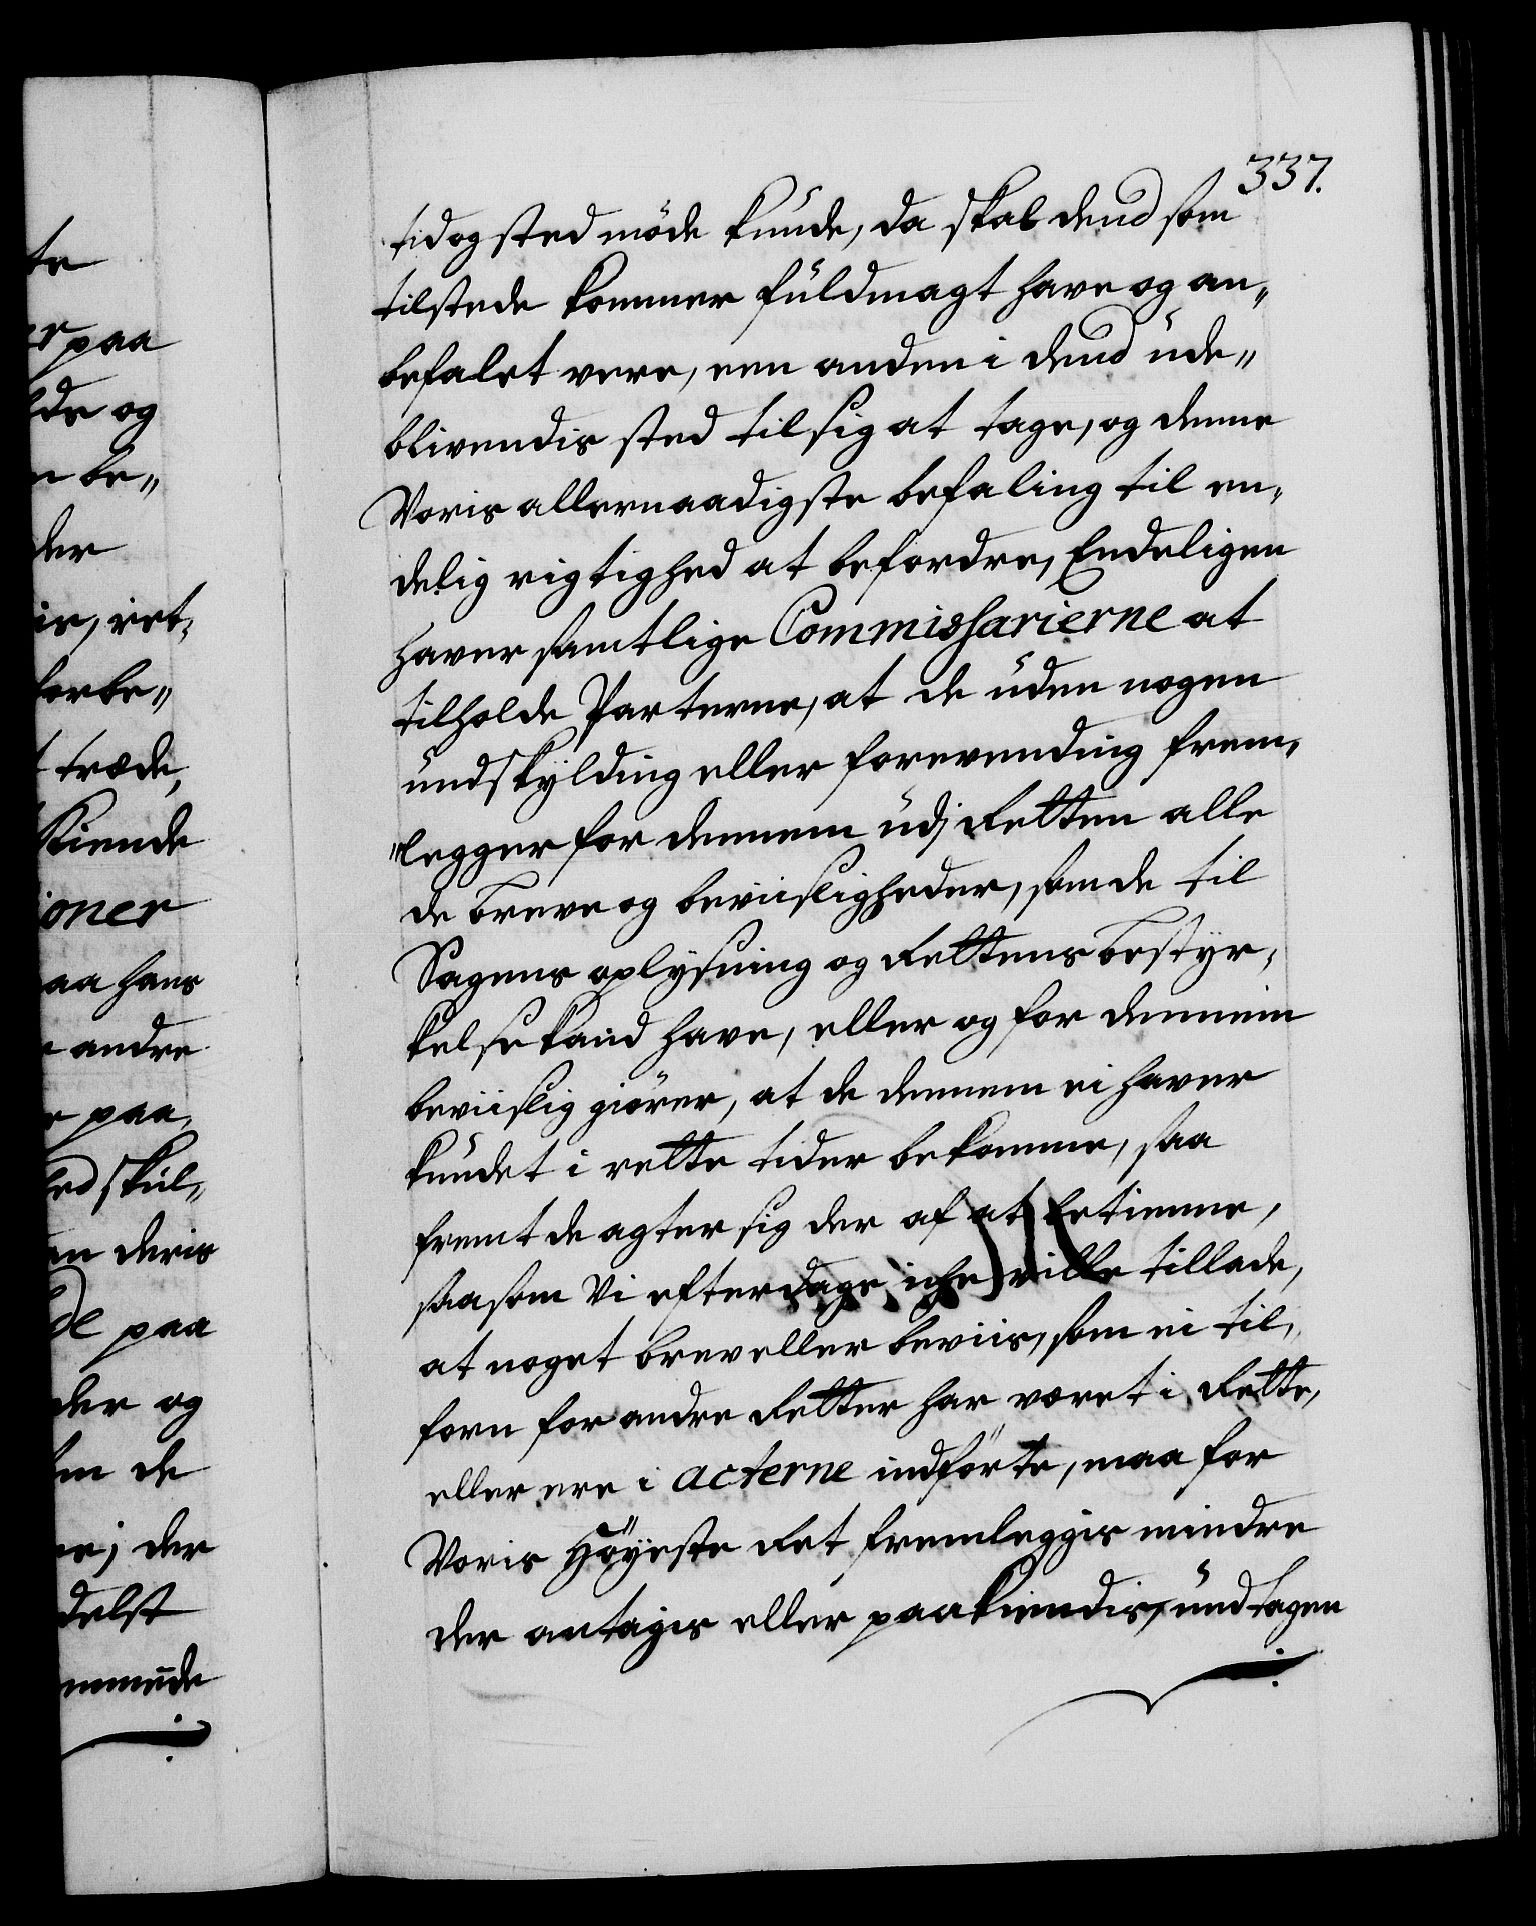 337.
tid og sted möde kunde, da skal dend som
tilstede kommer fuldmagt have og an„
befalet vere, een anden i dend ude„
blivendis sted til sig at tage, og denne
Voris allernaadigste befaling til en„
delig rigtighed at befordre, Endeligen
haver samtlige Commissarierne at
tilholde Parterne, at de uden nogen
undskylding eller forevending frem„
„legger for dennem udj Retten alle
de breve og beviisligheder, som de til
Sagens oplysning og Rettens bestyr„
kelse kand have, eller og for dennem
beviislig giörer, at de dennem ei haver
kundet i rette tider bekomme, saa
fremt de agter sig der af at betienne,
saasom Vi efterdage iche ville tillade,
at noget brev eller beviis, som ei til„
forn for andre Retter har været i Rette,
eller ere i acterne indförte, maa for
Voris Höyeste Ret fremleggis mindre
der antagis eller paakiendis, undtagen
te
er paa
lde og
n be„
der
is, ret„
forbe„
t træde,
kiende
ioner
aa hans
andre
e paa,
hed skul„
en deris
de paa
der og
de
e; der
delst